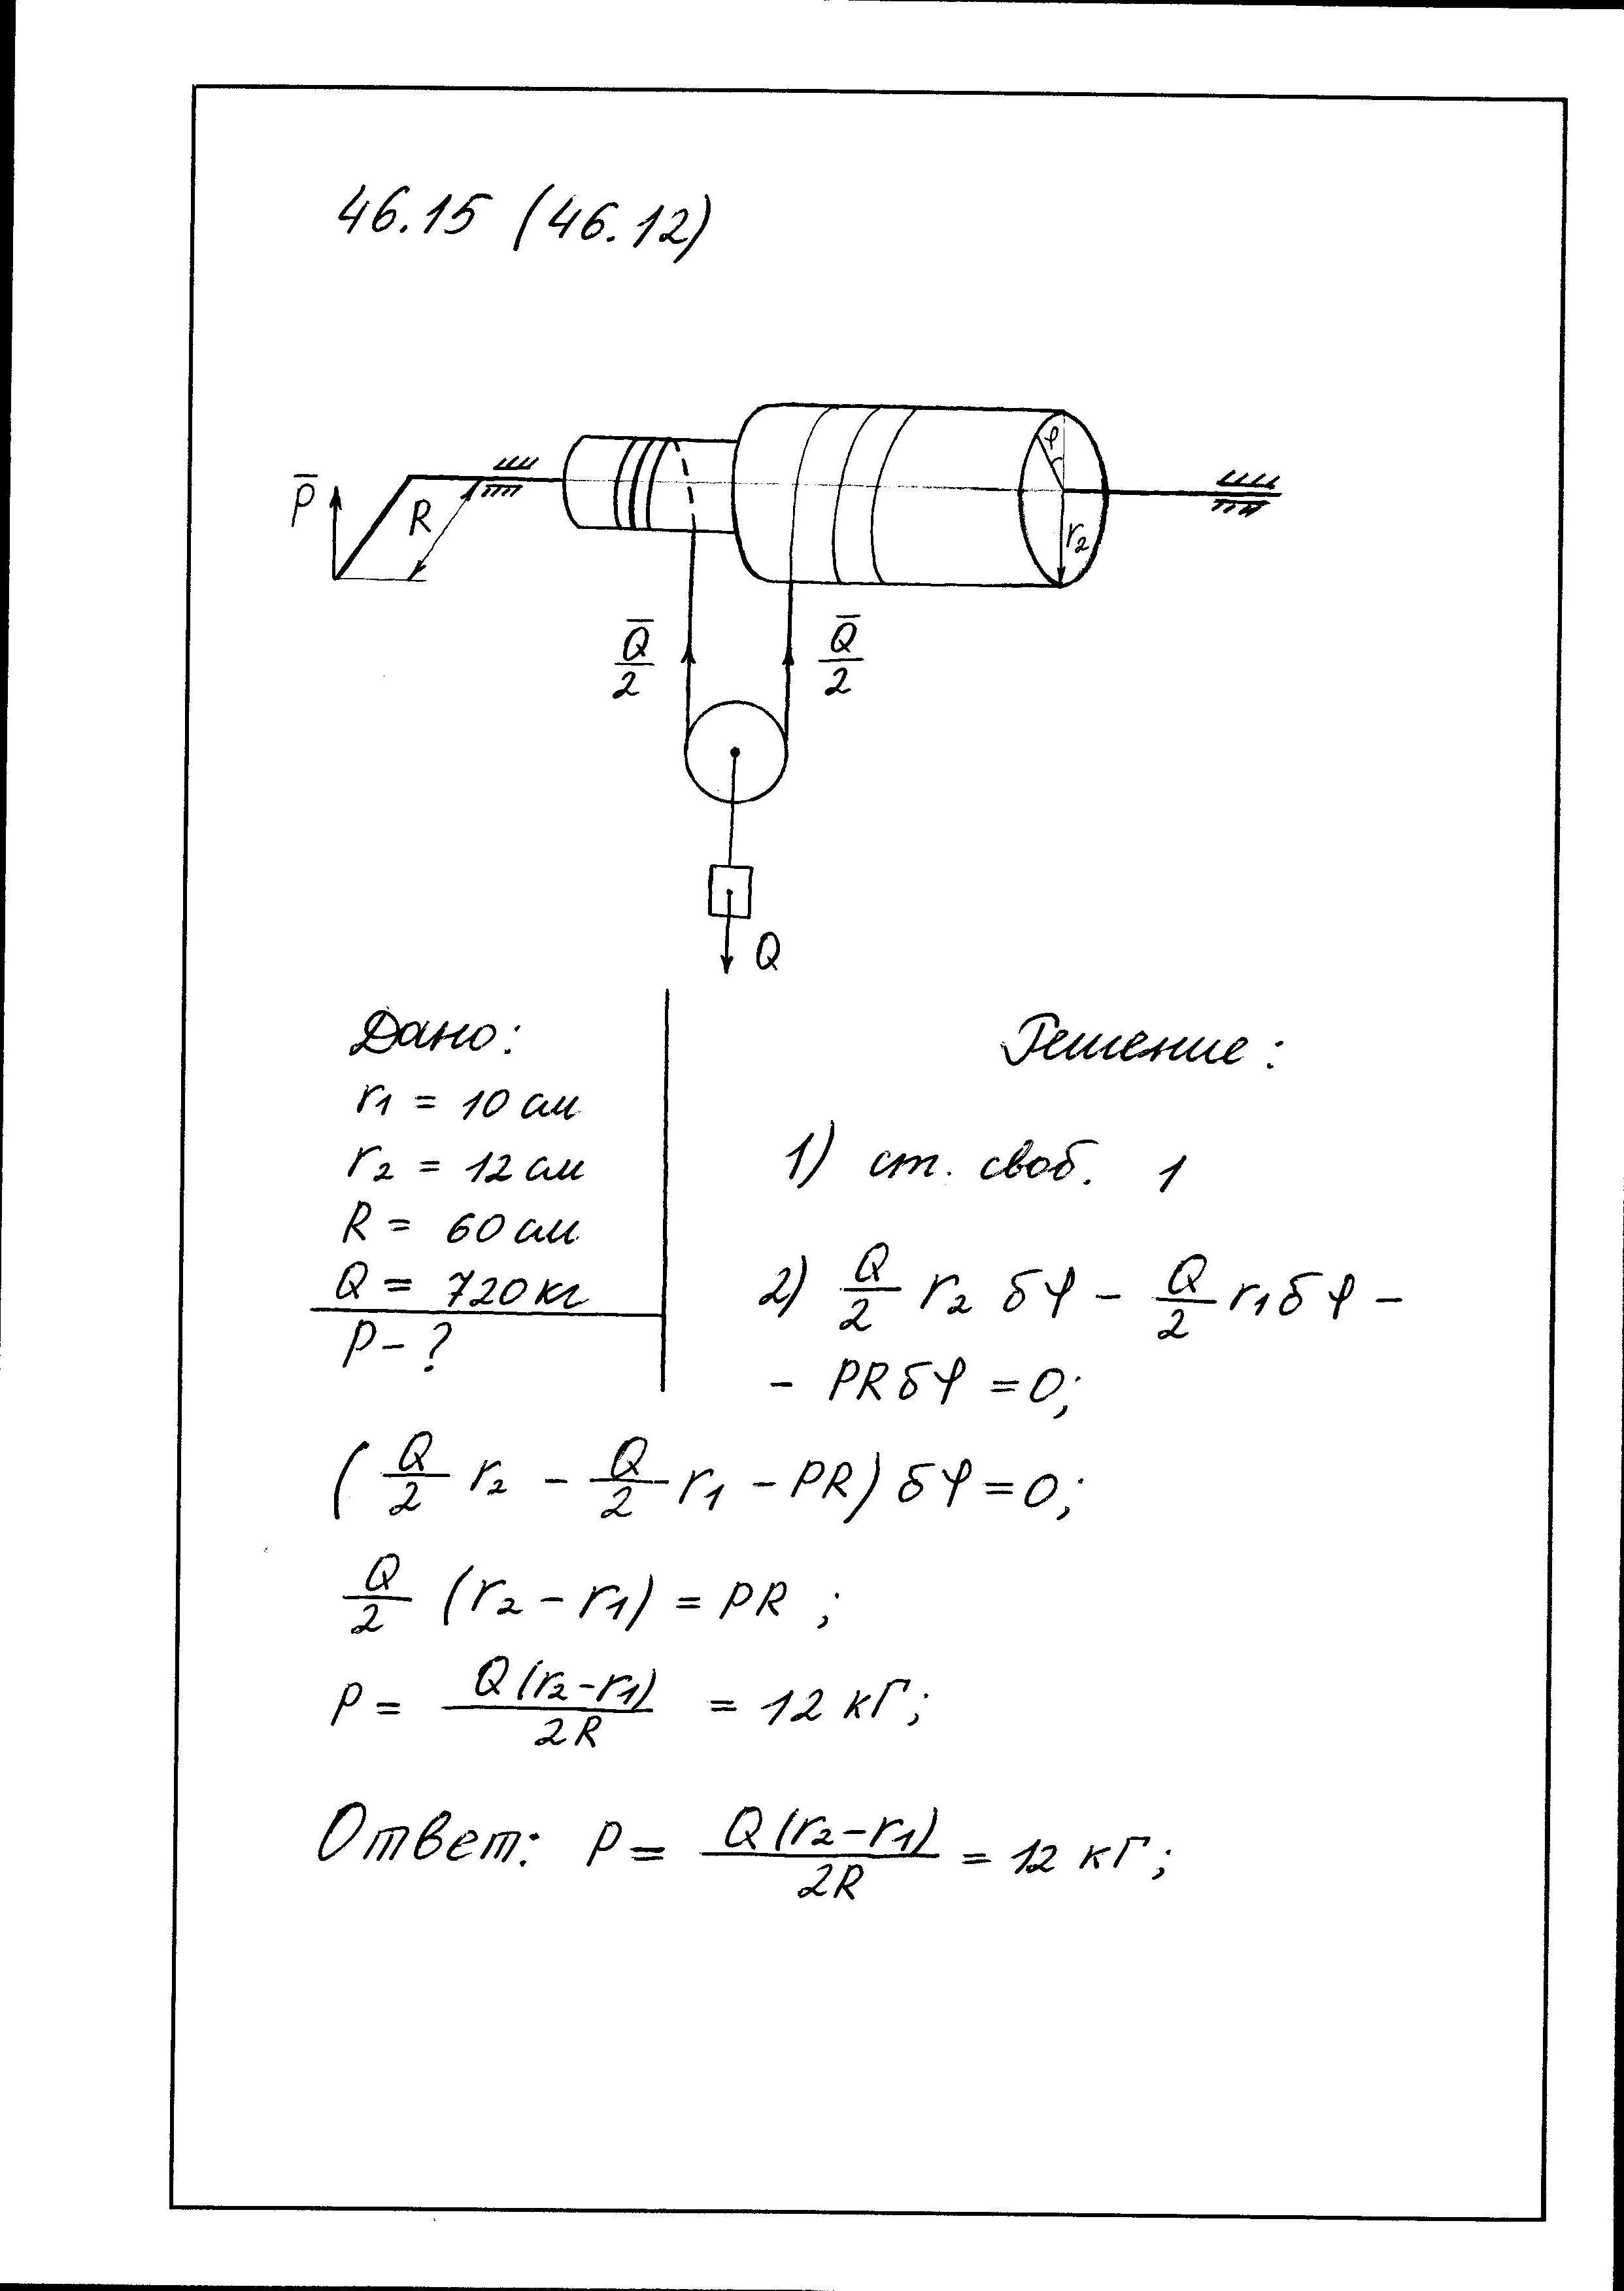 46.15 (46.12)
φ
P̅
R
r₂
Q̅/2 Q̅/2
Q
Дано:
r₁ = 10 см
r₂ = 12 см
R = 60 см
Q = 720 кг
P - ?
Решение:
1) ст. своб. 1
2) Q/2 r₂ δφ - Q/2 r₁ δφ -
- PR δφ = 0;
(Q/2 r₂ - Q/2 r₁ - PR) δφ = 0;
Q/2 (r₂ - r₁) = PR ;
P = Q(r₂-r₁)/2R = 12 кГ;
Ответ: P = Q(r₂-r₁)/2R = 12 кГ;